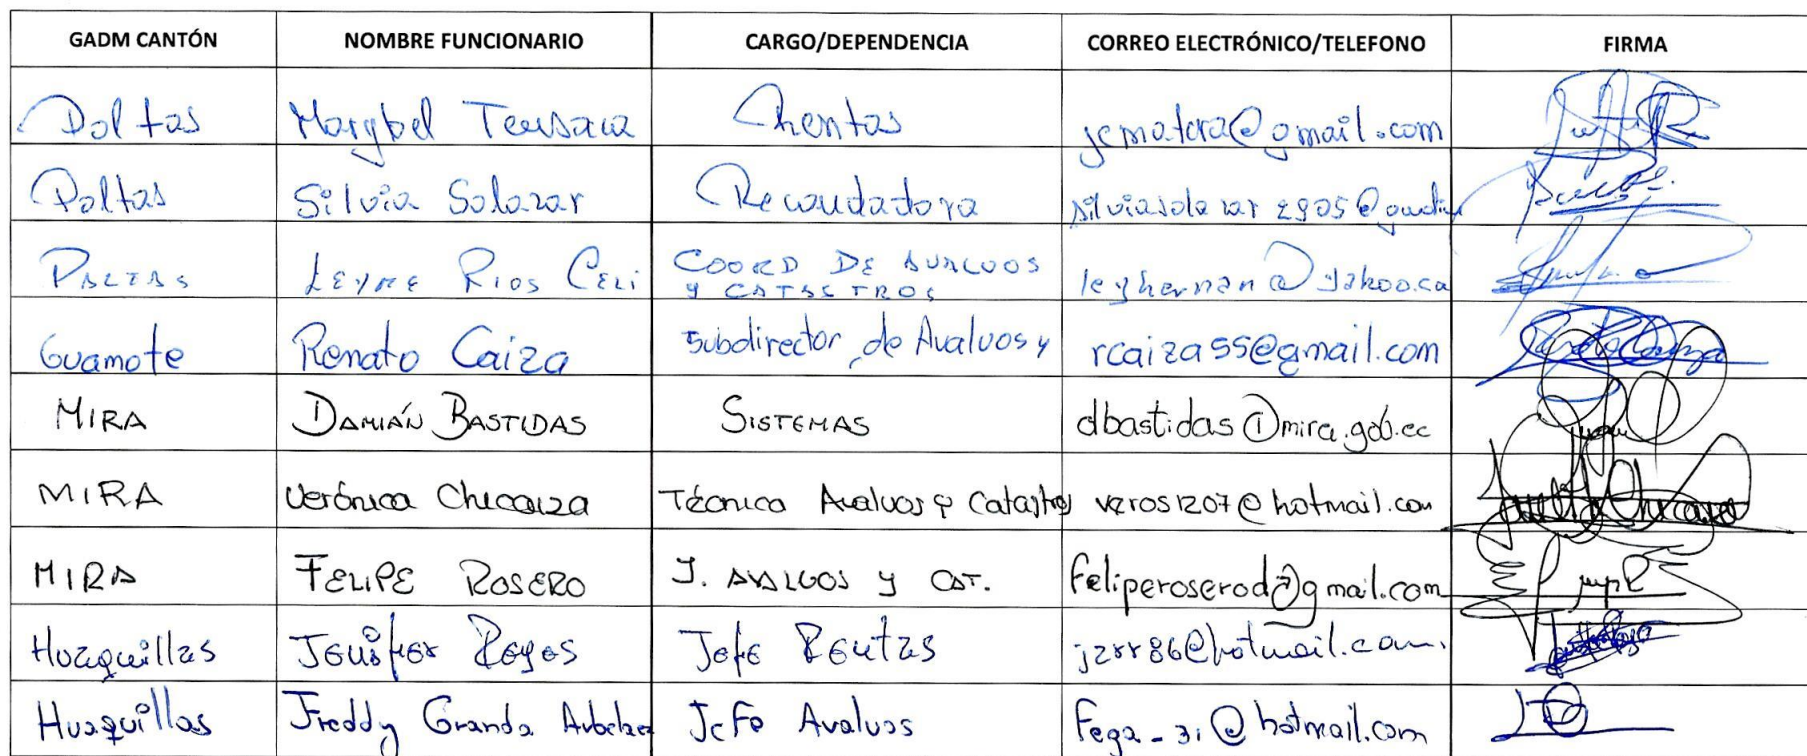 GADM CANTÓN NOMBRE FUNCIONARIO CARGO/DEPENDENCIA CORREO ELECTRÓNICO/TELEFONO FIRMA
Paltas Marybel jcmatora@gmail.com
Paltas Silvia Salazar Recaudadora silviasalazar2905@
PALTAS LEYNE RIOS CELI COORD DE AVALUOS
Y CATASTROS leyhernan@yahoo.ca
Guamote Renato Caiza Subdirector de Avaluos y rcaiza55@gmail.com
MIRA DAMIÁN BASTIDAS SISTEMAS dbastidas@mira.gob.ec
MIRA Verónica Chicaiza Técnico Avaluos y Catastros veros1207@hotmail.com
MIRA FELIPE ROSERO J. AVALUOS Y CAT. feliperoserod@gmail.com
Huaquillas Jenifer Reyes Jefe Rentas jarr86@hotmail.com.
Huaquillas Freddy Granda Jefe Avaluos Fega_31@hotmail.com